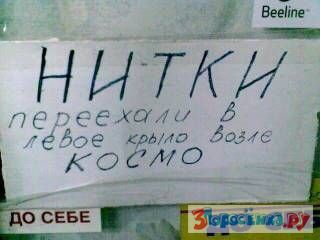 Beeline™
НИТКИ
переехали в
левое крыло возле
КОСМО
ДО СЕБЕ
3Поросёнка.РУ